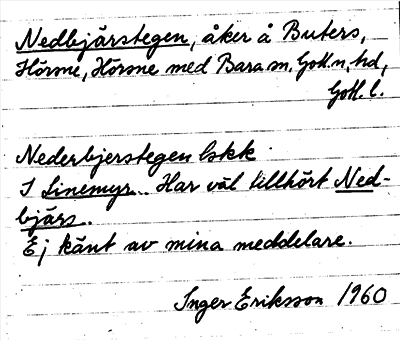 Nedbjärstegen, åker å Buters,
Hörsne, Hörsne med Bara sn, Gotl. n. hd,
Gotl. l.
Nederbjerstegen lskk
I Linemyr. Har väl tillhört Ned-
bjärs.
Ej känt av mina meddelare.
Inger Eriksson 1960